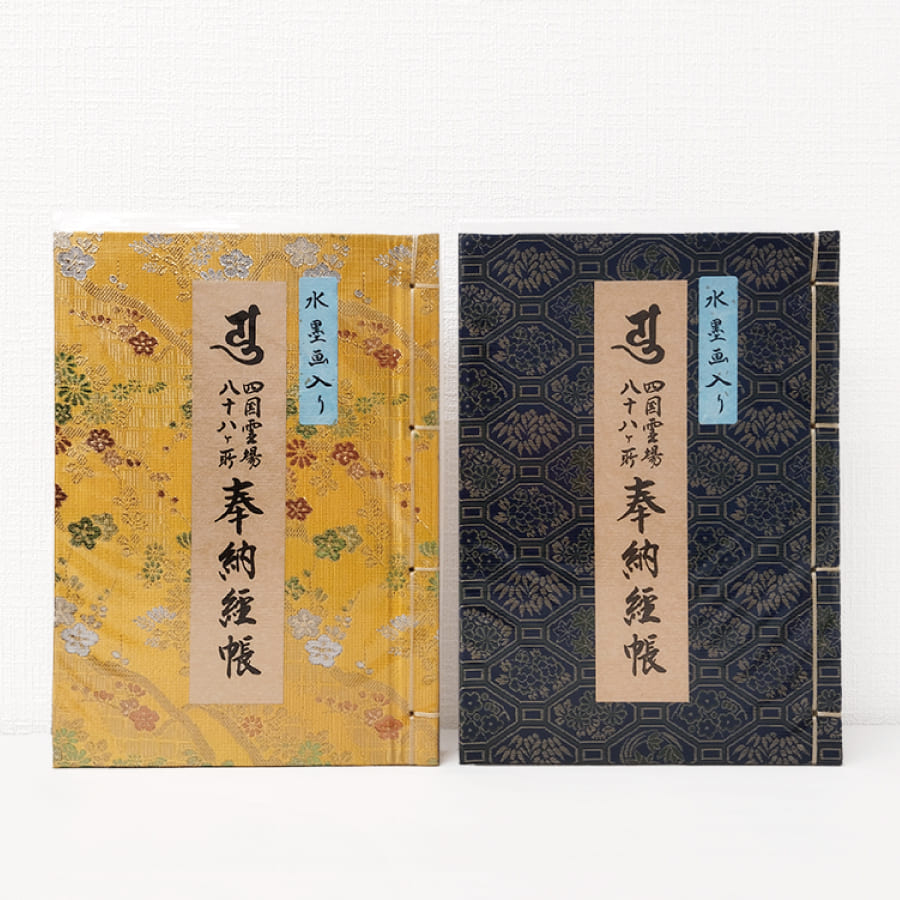 水墨画入り
四国霊場
八十八ヶ所
奉納経帳
水墨画入り
四国霊場
八十八ヶ所
奉納経帳